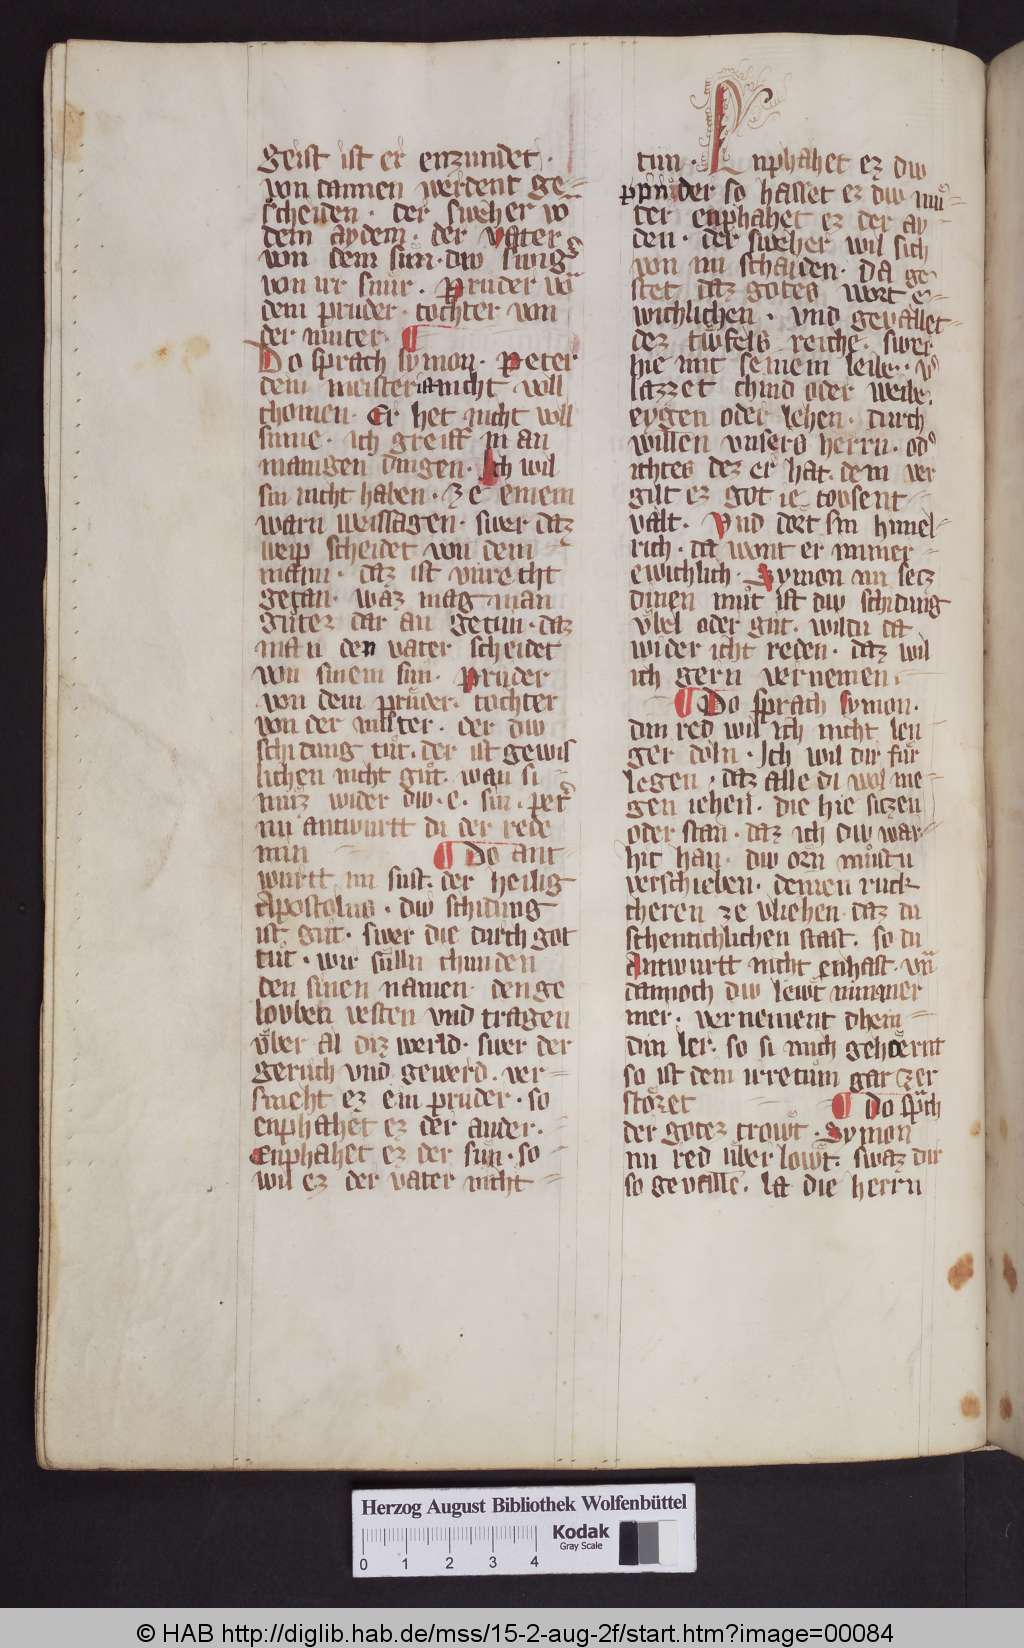 geist ist er enzundet ·
von dannen werdent ge-
scheiden · der sweher võ
dem aydem · der vater
von dem sůn · diw swiger
von ir snůr · pruder võ
dem pruder · tochter von
der můter · ¶
Do sprach symon · Peter
dein maister ist nicht voll
chomen · Er het nicht voll
sinne · ich greiff in an
manigen dingen · Ich wil
sin nicht haben · ze einem
warn weissagen · swer daz
weip scheidet von dem
mann · daz ist vnrecht
getan · waz mag man
gůtez dar an getůn · daz
man den vater scheidet
von sinem sůn · Pruder
von dem průder · tochter
von der můter · der diw
schidung tůt · der ist gewis
lichen nicht gůt · wan si
můz wider diw · e · sin · peter
nu antwurtt du der rede
min ¶ Do ant-
wurtt im sust · der heilig
Apostolus · diw schidung
ist gůt · swer die durch got
tůt · wir sůlln chunden
den sinen namen · den ge
lovben vesten vnd tragen
vber al diz werld · swer der
geruch vnd gewerd · ver-
smeht ez ein pruder · so
enphahet ez der ander ·
Enphahet ez der sůn · so
wil ez der vater nicht
tůn · Enphahet ez diw
so hasset ez diw můͦ-
ter enphahet ez der ay-
den · der sweher wil sich
von im schaiden · Da ge-
stet daz gotes wort e-
wichlichen · vnd gevallet
dez tiwfels reiche · swer
hie mit seinem leibe · vñ
lazzet chind oder weibe ·
eygen oder lehen · durch
willen vnsers herrn · od'
ichtes dez er hat · dem ver
gilt ez got ie tovsent
valt · Vnd dort sin himel-
rich · da wont er immer
ewichlich · Symon nu secz
dinen můt ist diw schidung
vbel oder gůt · wildu da
wider icht reden · daz wil
ich gern vernemen ·
¶ Do sprach symon ·
din red wil ich nicht len
ger doln · Ich wil dir fůr
legen · daz alle di wol me-
gen iehen · die hie siczen
oder stan · daz ich diw war-
hit han · diw orn můstu
verschieben · deinen ruck
cheren ze vliehen daz du
schentichlichen stast · so du
Antwurtt nicht enhast · vñ
dannoch diw lewt nimmer
mer · vernement dhein
din ler · so si mich gehoernt
so ist dein irretům gar zer
stoͤzet ¶ Do sprach
der gotez trowt · Symon
nu red vber lowt · swaz dir
so gevalle · la die herrn
Herzog August Bibliothek Wolfenbüttel
Kodak
Gray Scale
0 1 2 3 4
© HAB http://diglib.hab.de/mss/15-2-aug-2f/start.htm?image=00084